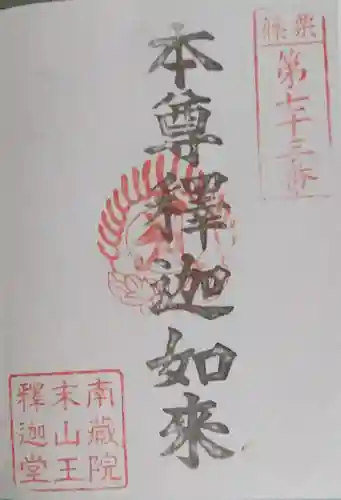 粟
第七十三番
本尊釋迦如來
南蔵院
末山王
釋迦堂